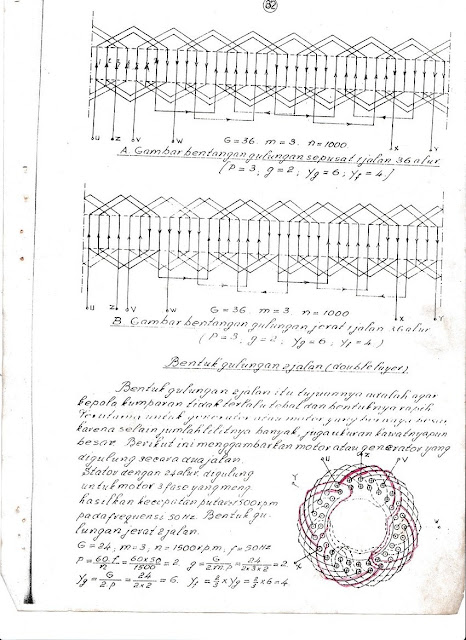 32
1 2 3
U Z V W X Y
G=36. m=3. n=1000
A. Gambar bentangan gulungan sepusat 1 jalan 36 alur
(P=3, g=2; Yg=6; Yf=4)
U Z V W X Y
G=36. m=3 n=1000
B Gambar bentangan gulungan jerat 1 jalan 36 alur
(P=3, g=2; Yg=6; Yf=4)
Bentuk gulungan 2 jalan (double layer)
Bentuk gulungan 2 jalan itu tujuannya adalah agar
kepala kumparan tidak terlalu tebal dan bentuknya rapih
Terutama untuk generator atau motor yang besar
karena selain jumlah lilitnya banyak, juga ukuran kawatnya pun
besar. Berikut ini menggambarkan motor atau generator yang
digulung secara dua jalan.
Stator dengan 24 alur, digulung
untuk motor 3 fase yang meng
hasilkan kecepatan putar 1500 rpm
pada frequensi 50 Hz. Bentuk gu-
lungan jerat 2 jalan.
G=24, m=3, n=1500 rpm, f=50 Hz
P=60.f/n=60x50/1500=2. g=G/2.m.p=24/2x3x2=2.
Yg=G/2P=24/2x2=6. Yf=2/3 x Yg=2/3x6=4
U Z V